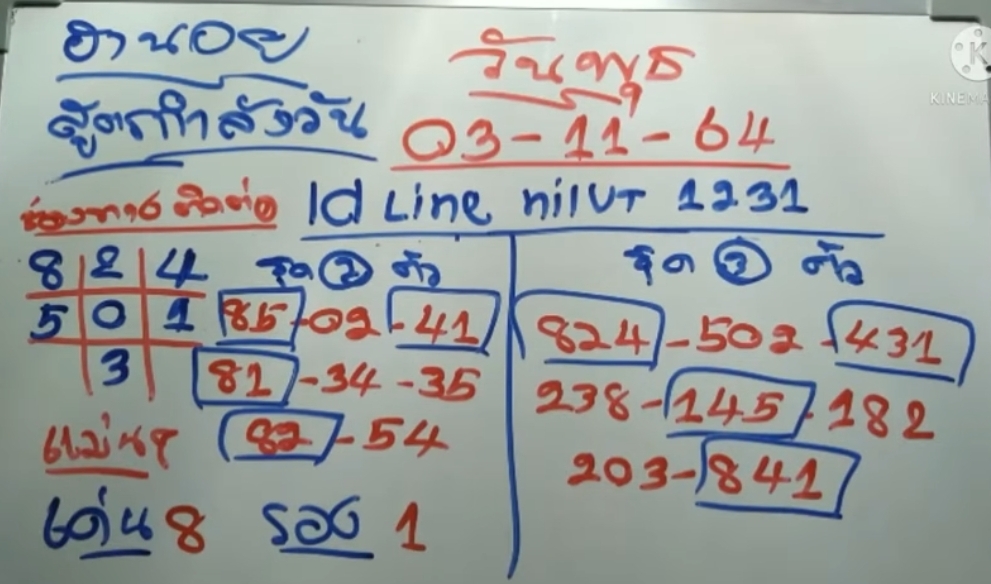 ฮานอย
วันพุธ
สูตรกำลังวัน
03-11-64
KINEMA
ช่องทางติดต่อ Id Line nilut 1231
8 2 4
5 0 1
3
ชุด 2 ตัว
85-02-41
81-34-35
82-54
แม่นๆ
เด่น 8 รอง 1
ชุด 3 ตัว
824-502-431
238-145-182
203-841